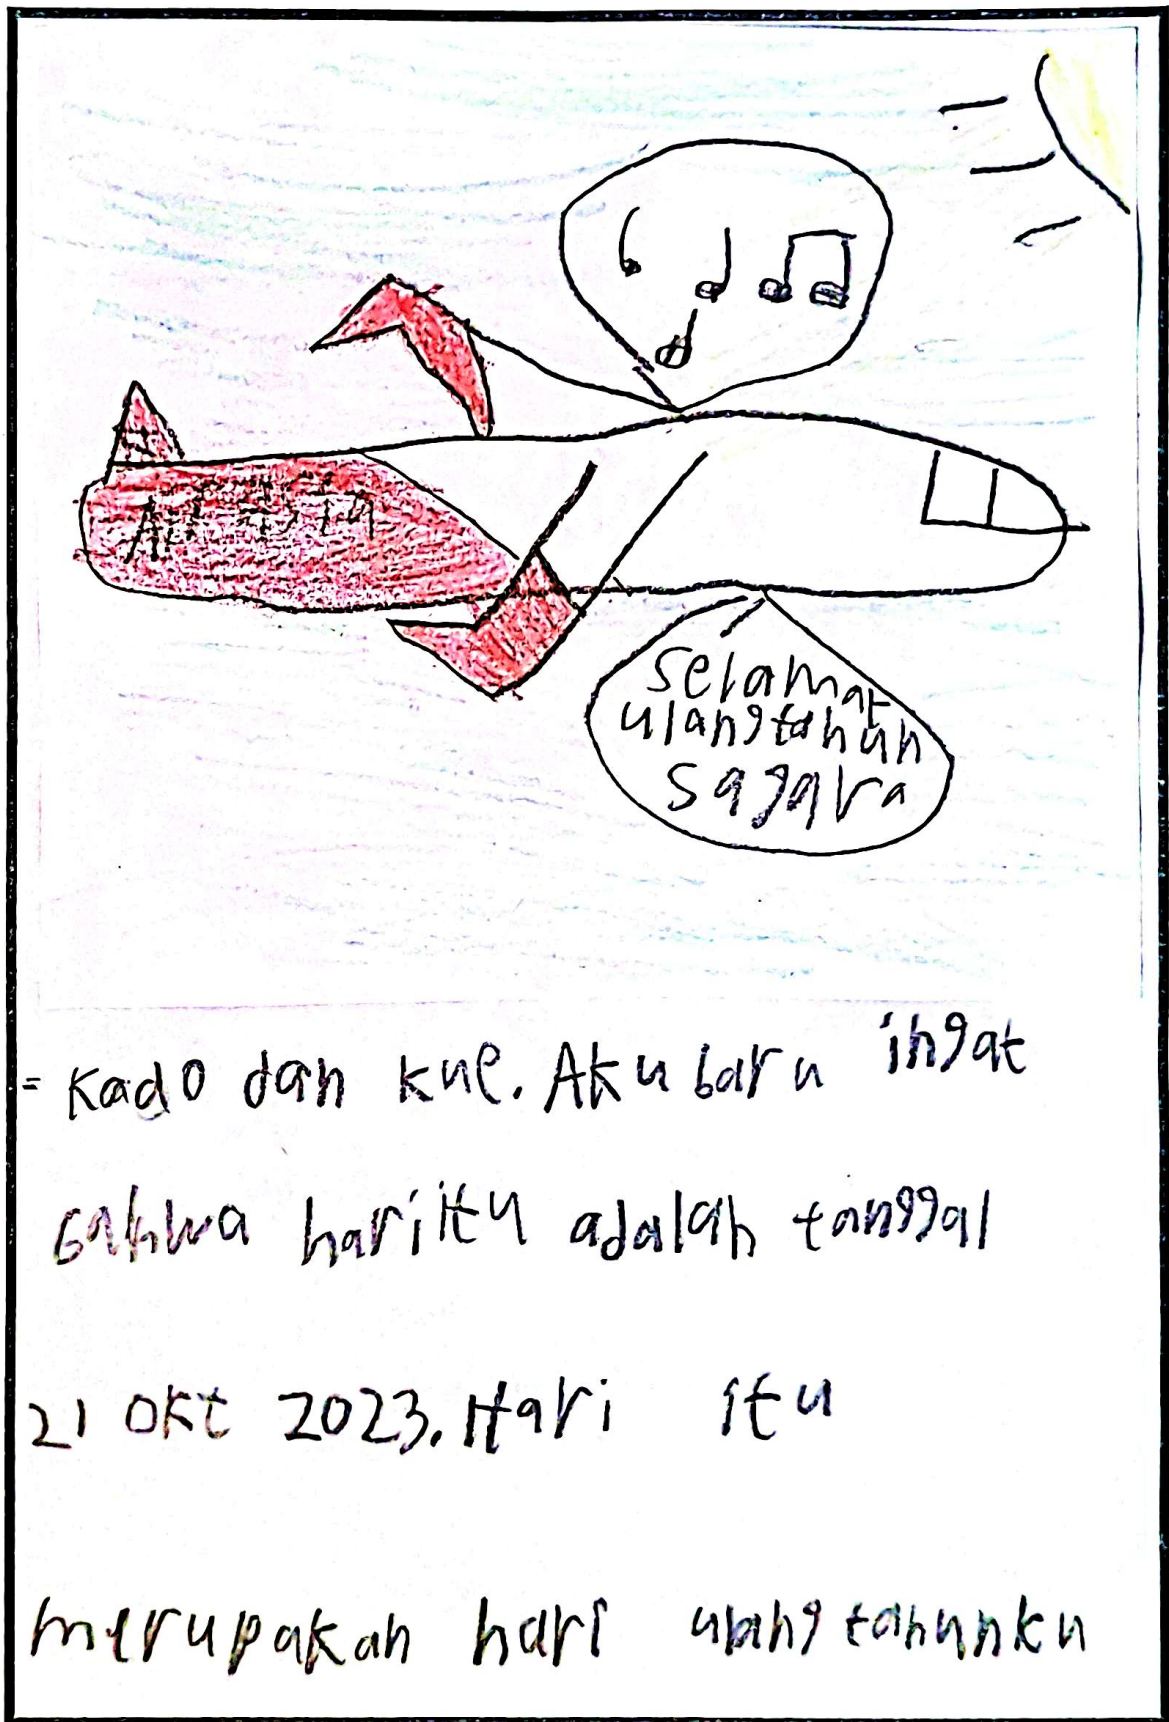 selamat
ulangtahun
sagara
= Kado dan kue. Aku baru ingat
bahwa hari itu adalah tanggal
21 Okt 2023. Hari itu
merupakan hari ulang tahunku